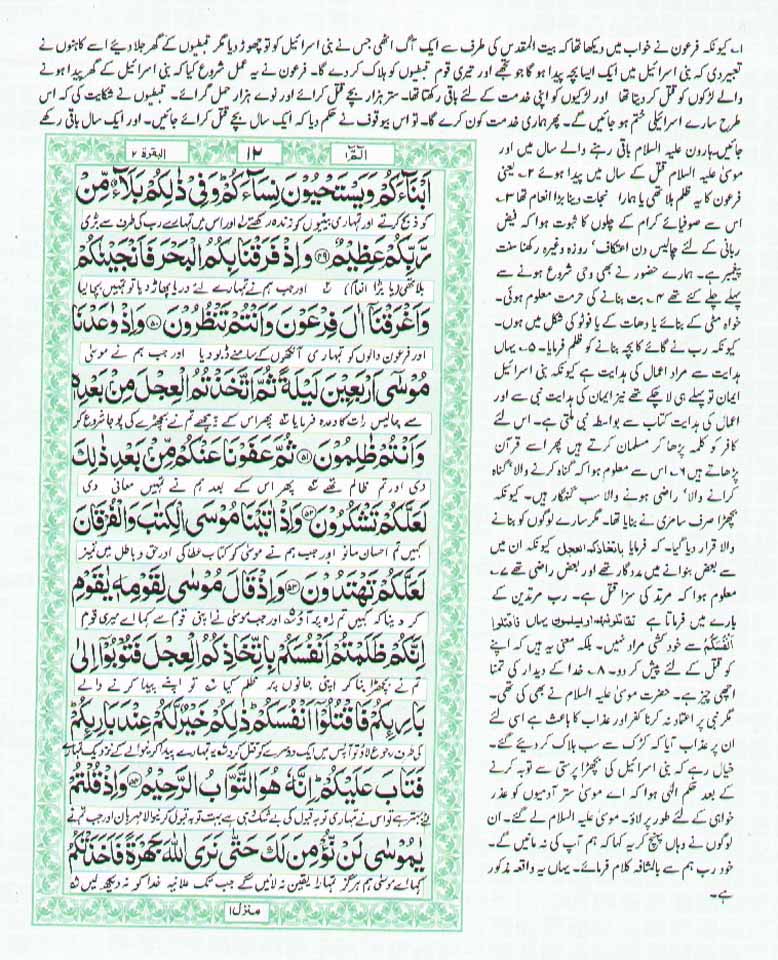 ۱۔ کیونکہ فرعون نے خواب میں دیکھا تھا کہ بیت المقدس کی طرف سے ایک آگ اٹھی جس نے بنی اسرائیل کو تو چھوڑ دیا مگر قبطیوں کے گھر جلا دیئے اسے کاہنوں نے
تعبیر دی کہ بنی اسرائیل میں ایک ایسا بچہ پیدا ہو گا جو تجھے اور تیری قوم قبطیوں کو ہلاک کر دے گا۔ فرعون نے یہ عمل شروع کیا کہ بنی اسرائیل کے گھر پیدا ہونے
والے لڑکوں کو قتل کر دیتا تھا اور لڑکیوں کو اپنی خدمت کے لئے باقی رکھتا تھا۔ ستر ہزار بچے قتل کرائے اور نوے ہزار حمل گرائے۔ قبطیوں نے شکایت کی کہ اس
طرح سارے اسرائیلی ختم ہو جائیں گے۔ پھر ہماری خدمت کون کرے گا۔ تو اس بیوقوف نے حکم دیا کہ ایک سال بچے قتل کرائے جائیں۔ اور ایک سال باقی رکھے
جائیں ہارون علیہ السلام باقی رہنے والے سال میں اور
موسیٰ علیہ السلام قتل کے سال میں پیدا ہوئے ۲۔ یعنی
فرعون کا یہ ظلم بلا تھی یا ہمارا نجات دینا بڑا انعام تھا ۳۔
اس سے صوفیائے کرام کے چلوں کا ثبوت ہوا کہ فیض
ربانی کے لئے چالیس دن اعتکاف' روزہ وغیرہ رکھنا سنت
پیغمبر ہے۔ ہمارے حضور نے بھی وحی شروع ہونے سے
پہلے چلے کئے تھے ۴۔ بت بنانے کی حرمت معلوم ہوئی۔
خواہ مٹی کے بنائے یا دھات کے یا فوٹو کی شکل میں ہوں۔
کیونکہ رب نے گائے کا بچہ بنانے کو ظلم فرمایا۔ ۵۔ یہاں
ہدایت سے مراد اعمال کی ہدایت ہے کیونکہ بنی اسرائیل
ایمان تو پہلے ہی لا چکے تھے نیز ایمان کی ہدایت نبی سے اور
اعمال کی ہدایت کتاب سے بواسطہ نبی ملتی ہے۔ اس لئے
کافر کو کلمہ پڑھا کر مسلمان کرتے ہیں پھر اسے قرآن
پڑھاتے ہیں ۶۔ اس سے معلوم ہوا کہ گناہ کرنے والا' گناہ
کرانے والا' راضی ہونے والا سب گنہگار ہیں۔ کیونکہ
بچھڑا صرف سامری نے بنایا تھا۔ مگر سارے لوگوں کو بنانے
والا قرار دیا گیا۔ کہ فرمایا باتخاذکم العجل کیونکہ ان میں
سے بعض بنوانے میں مددگار تھے اور بعض راضی تھے ۷۔
معلوم ہوا کہ مرتد کی سزا قتل ہے۔ رب مرتدین کے
بارے میں فرماتا ہے تقاتلونہم اویسلمون یہاں فاقتلوا
انفسکم سے خود کشی مراد نہیں۔ بلکہ معنی یہ ہیں کہ اپنے
کو قتل کے لئے پیش کر دو۔ ۸۔ خدا کے دیدار کی تمنا
اچھی چیز ہے۔ حضرت موسیٰ علیہ السلام نے بھی کی تھی۔
مگر نبی پر اعتماد نہ کرنا کفر اور عذاب کا باعث ہے اسی لئے
ان پر عذاب آیا کہ کڑک سے سب ہلاک کر دیئے گئے۔
خیال رہے کہ بنی اسرائیل کی بچھڑا پرستی سے توبہ کرنے
کے بعد حکم الٰہی ہوا کہ اے موسیٰ ستر آدمیوں کو عذر
خواہی کے لئے طور پر لاؤ۔ موسیٰ علیہ السلام لے گئے۔ ان
لوگوں نے وہاں پہنچ کر یہ کہا کہ ہم آپ کی نہ مانیں گے۔
خود رب ہم سے بالمشافہ کلام فرمائے۔ یہاں یہ واقعہ مذکور
ہے۔
الٓمّٓ ۱ ۱۲ البقرة ۲
اَبْنَآءَكُمْ وَيَسْتَحْيُوْنَ نِسَآءَكُمْ وَفِيْ ذٰلِكُمْ بَلَآءٌ مِّنْ
کو ذبح کرتے اور تمہاری بیٹیوں کو زندہ رکھتے ۱ اور اس میں تمہارے رب کی طرف سے بڑی
رَّبِّكُمْ عَظِيْمٌ ۴۹ وَاِذْ فَرَقْنَا بِكُمُ الْبَحْرَ فَاَنْجَيْنٰكُمْ
بلا تھی (یا بڑا انعام) ۲ اور جب ہم نے تمہارے لئے دریا پھاڑ دیا تو تمہیں بچا لیا
وَاَغْرَقْنَآ اٰلَ فِرْعَوْنَ وَاَنْتُمْ تَنْظُرُوْنَ ۵۰ وَاِذْ وٰعَدْنَا
اور فرعون والوں کو تمہاری آنکھوں کے سامنے ڈبو دیا اور جب ہم نے موسیٰ
مُوْسٰٓى اَرْبَعِيْنَ لَيْلَةً ثُمَّ اتَّخَذْتُمُ الْعِجْلَ مِنْۢ بَعْدِهٖ
سے چالیس رات کا وعدہ فرمایا ۳ پھر اس کے پیچھے تم نے بچھڑے کی پوجا شروع کر
وَاَنْتُمْ ظٰلِمُوْنَ ۵۱ ثُمَّ عَفَوْنَا عَنْكُمْ مِّنْۢ بَعْدِ ذٰلِكَ
دی اور تم ظالم تھے ۴ پھر اس کے بعد ہم نے تمہیں معافی دی
لَعَلَّكُمْ تَشْكُرُوْنَ ۵۲ وَاِذْ اٰتَيْنَا مُوْسَى الْكِتٰبَ وَالْفُرْقَانَ
کہیں تم احسان مانو اور جب ہم نے موسیٰ کو کتاب عطا کی اور حق و باطل میں تمیز
لَعَلَّكُمْ تَهْتَدُوْنَ ۵۳ وَاِذْ قَالَ مُوْسٰى لِقَوْمِهٖ يٰقَوْمِ
کر دینا کہ کہیں تم راہ پر آؤ ۵ اور جب موسیٰ نے اپنی قوم سے کہا اے میری قوم
اِنَّكُمْ ظَلَمْتُمْ اَنْفُسَكُمْ بِاتِّخَاذِكُمُ الْعِجْلَ فَتُوْبُوْٓا اِلٰى
تم نے بچھڑا بنا کر اپنی جانوں پر ظلم کیا ۶ تو اپنے پیدا کرنے والے
بَارِئِكُمْ فَاقْتُلُوْٓا اَنْفُسَكُمْ ذٰلِكُمْ خَيْرٌ لَّكُمْ عِنْدَ بَارِئِكُمْ
کی طرف رجوع لاؤ تو آپس میں ایک دوسرے کو قتل کرو ۷ یہ تمہارے پیدا کرنے والے کے نزدیک تمہارے
فَتَابَ عَلَيْكُمْ اِنَّهٗ هُوَ التَّوَّابُ الرَّحِيْمُ ۵۴ وَاِذْ قُلْتُمْ
لئے بہتر ہے تو اس نے تمہاری توبہ قبول کی بے شک وہی ہے بہت توبہ قبول کرنیوالا مہربان اور جب تم نے
يٰمُوْسٰى لَنْ نُّؤْمِنَ لَكَ حَتّٰى نَرَى اللّٰهَ جَهْرَةً فَاَخَذَتْكُمُ
کہا اے موسیٰ ہم ہرگز تمہارا یقین نہ لائیں گے جب تک علانیہ خدا کو نہ دیکھ لیں ۸
منزل ۱